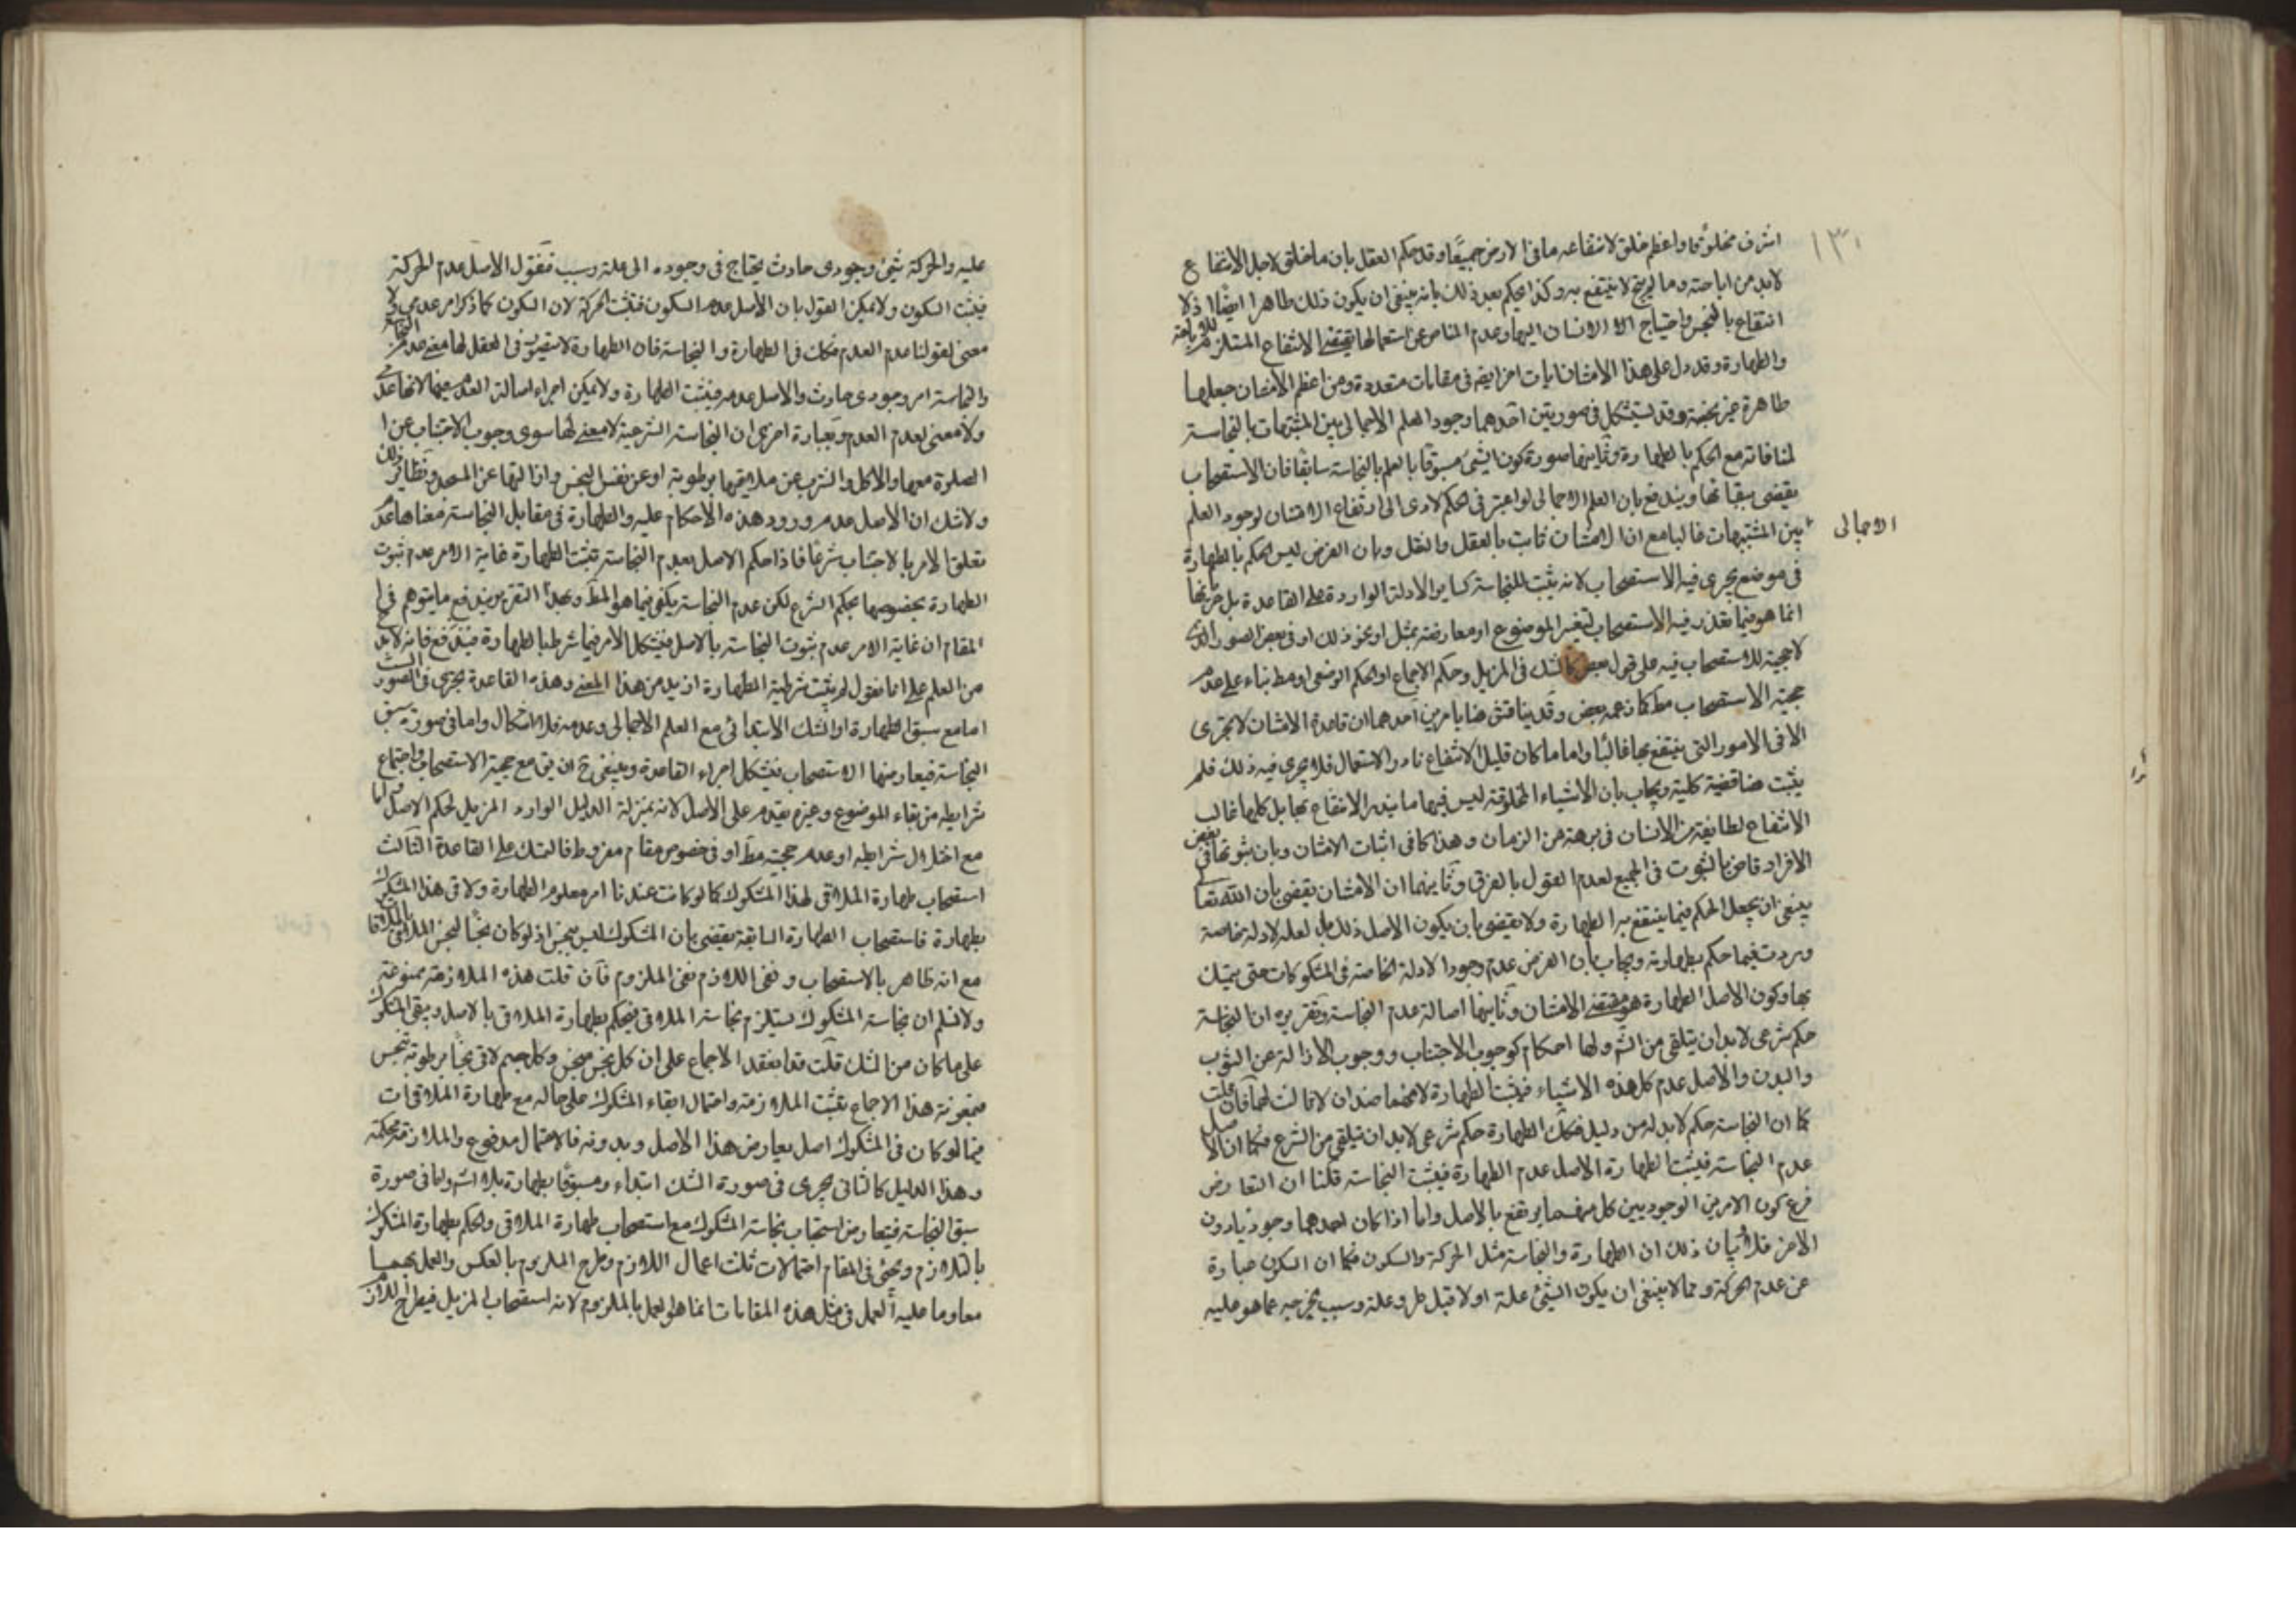 ١٣٠
اشرف مخلوقا واعظم خلق لانتفاعه ما فى الارض جميعًا وقد حكم العقل بان ما خلق لاجل الانتفاع
لابد من اباحته وما لم يبح لا ينتفع به وكذا يحكم بعد ذلك بانه ينبغى ان يكون ذلك طاهرا ايضًا اذ لا
انتفاع بالنجس واحتياج الانسان اليها وعدم المناص عن استعمالها يقتضى الانتفاع المستلزم للاباحة
والطهارة وقد دل على هذا الامتنان ايات اخر ايضا فى مقامات متعددة ومن اعظم الامتنان جعلها
طاهرة غير نجسة وقد يستشكل فى صورتين احدهما وجود العلم الاجمالى بين المشتبهات بالنجاسة
لمنافاته مع الحكم بالطهارة وثانيهما صورة كون الشئ مسبوقا بالعلم بالنجاسة سابقا فان الاستصحاب
يقضى ببقائها ويندفع بان العلم الاجمالى لو اعتبر فى الحكم لادى الى ارتفاع الامتنان لوجود العلم
الاجمالى
بين المشتبهات غالبا مع ان الامتنان ثابت بالعقل والنقل وبان الغرض ليس الحكم بالطهارة
فى موضع يجرى فيه الاستصحاب لانه يثبت للنجاسة كساير الادلة الواردة على القاعدة بل
انما هو فيما تعذر فيه الاستصحاب لتغير الموضوع او معارضته بمثل او نحو ذلك او فى بعض الصور الذى
لا حجية للاستصحاب فيه على قول بعض كالشك فى المزيل وحكم الاجماع او الحكم الوضعى او مط بناء على عدم
حجية الاستصحاب مط كما زعمه بعض وقد يناقش هنا بامرين احدهما ان قاعدة الامتنان لا تجرى
الا فى الامور التى ينتفع بها غالبًا واما ما كان قليل الانتفاع نادر الاستعمال فلا يجرى فيه ذلك فلم
يثبت هنا قضية كلية ويجاب بان الاشياء المخلوقة ليس فيها ما يندر الانتفاع بها بل كلها غالب
الانتفاع لطايفة من الانسان فى برهة من الزمان وهذا كافى اثبات الامتنان وبان ثبوتها فى بعض
الافراد قاض بالثبوت فى الجميع لعدم القول بالفرق وثانيهما ان الامتنان يقضى بان الله تعا
ينبغى ان يجعل الحكم فيما ينتفع به الطهارة ولا يقضى بان يكون الاصل ذلك بل لعله لادلة خاصة
وردت فيما حكم بطهارته ويجاب بان الغرض عدم وجود الادلة الخاصة فى المشكوكات حتى يتمسك
بها وكون الاصل الطهارة هو مقتضى الامتنان وثانيها اصالة عدم النجاسة وتقريره ان النجاسة
حكم شرعى لابد ان يتلقى من الش ولها احكام كوجوب الاجتناب ووجوب الازالة عن الثوب
والبدن والاصل عدم كل هذه الاشياء فيثبت الطهارة لانهما ضدان لا ثالث لهما فان قلت
كما ان النجاسة حكم لابد له من دليل فكك الطهارة حكم شرعى لابد ان يتلقى من الشرع فكما ان الاصل
عدم النجاسة فيثبت الطهارة الاصل عدم الطهارة فيثبت النجاسة قلنا ان التعارض
فرع كون الامرين الوجوديين كل منهما يرتفع بالاصل واما اذا كان احدهما وجوديا دون
الاخر فلا بيان ذلك ان الطهارة والنجاسة مثل الحركة والسكون فكما ان السكون عبارة
عن عدم الحركة ومما لا ينبغى ان يكون الشئ علة اولا قبل طرو علة وسبب يخرجه عما هو عليه
عليه والحركة شئ وجودى حادث يحتاج فى وجوده الى علة وسبب فنقول الاصل عدم الحركة
فيثبت السكون ولا يمكن القول بان الاصل عدم السكون فيثبت الحركة لان السكون كما ذكر امر عدمى ولا
معنى لقولنا عدم العدم فكك فى الطهارة والنجاسة فان الطهارة لا يتصور فى العقل لها معنى عدم النجاسة
والنجاسة امر وجودى حادث والاصل عدمه فيثبت الطهارة ولا يمكن اجراء اصالة العدم فيها لانها عدم
ولا معنى لعدم العدم وبعبارة اخرى ان النجاسة الشرعية لا معنى لها سوى وجوب الاجتناب عن
الصلوة معها والاكل والشرب عن ملاقيها برطوبة او عن نفس النجس وازالتها عن المسجد ونظاير ذلك
ولا شك ان الاصل عدم ورود هذه الاحكام عليه والطهارة فى مقابل النجاسة فمعناها عدم
تعلق الامر بالاجتناب شرعًا فاذا حكم الاصل بعدم النجاسة تثبت الطهارة غاية الامر عدم ثبوت
الطهارة بخصوصها بحكم الشرع لكن عدم النجاسة يكفى فيما هو المط وبهذا التقرير يندفع ما يتوهم فى
المقام ان غاية الامر عدم ثبوت النجاسة بالاصل فيشكل الامر فيما شرط بالطهارة فيندفع فانه لابد
من العلم على انا نقول لم يثبت شرطية الطهارة ازيد من هذا المعنى وهذه القاعدة تجرى فى الصور الست
اما مع سبق الطهارة او الشك الابتدائى مع العلم الاجمالى وعدمه فلا اشكال واما فى صورة سبق
النجاسة فيعارضها الاستصحاب فيشكل اجراء القاعدة وينبغى ح ان يق مع حجية الاستصحاب واجتماع
شرايطه من بقاء الموضوع وغيره يقدم على الاصل لانه بمنزلة الدليل الوارد المزيل لحكم الاصل واما
مع اختلال شرايطه او عدم حجيته مط او فى خصوص مقام مفروط فالتمسك على القاعدة الثالث
استصحاب طهارة الملاقى لهذا المشكوك كما لو كانت عندنا امر معلوم الطهارة ولاقى هذا المشكوك
بطهارة فاستصحاب الطهارة السابقة يقضى بان المشكوك ليس بنجس اذ لو كان نجسًا لنجس الملاقى بالملاقا
مع انه طاهر بالاستصحاب ونفى اللازم نفى الملزوم فان قلت هذه الملازمة ممنوعة
ولا نسلم ان نجاسة المشكوك يستلزم نجاسة الملاقى فيحكم بطهارة الملاقى بالاصل ويبقى المشكوك
على ما كان من الشك قلت قد انعقد الاجماع على ان كل نجس منجس وكل جسم لاقى نجسًا برطوبة نجس
فبمعونة هذا الاجماع تثبت الملازمة واحتمال ابقاء المشكوك على حاله مع طهارة الملاقى ات
فيما لو كان فى المشكوك اصل يعارض هذا الاصل وبدونه فالاحتمال مدفوع والملازمة محكمة
وهذا الدليل كالثانى يجرى فى صورة الشك ابتداء ومسبوقًا بطهارة بلا اشكال واما فى صورة
سبق النجاسة فيتعارض استصحاب نجاسة المشكوك مع استصحاب طهارة الملاقى والحكم بطهارة المشكوك
بالتلازم ويجئ فى المقام احتمالات ثلث اعمال اللازم وطرح الملزوم بالعكس والعمل بهما
معا وما عليه العمل فى مثل هذه المقامات انما هو العمل بالملزوم لانه استصحاب المزيل فيطرح اللازم